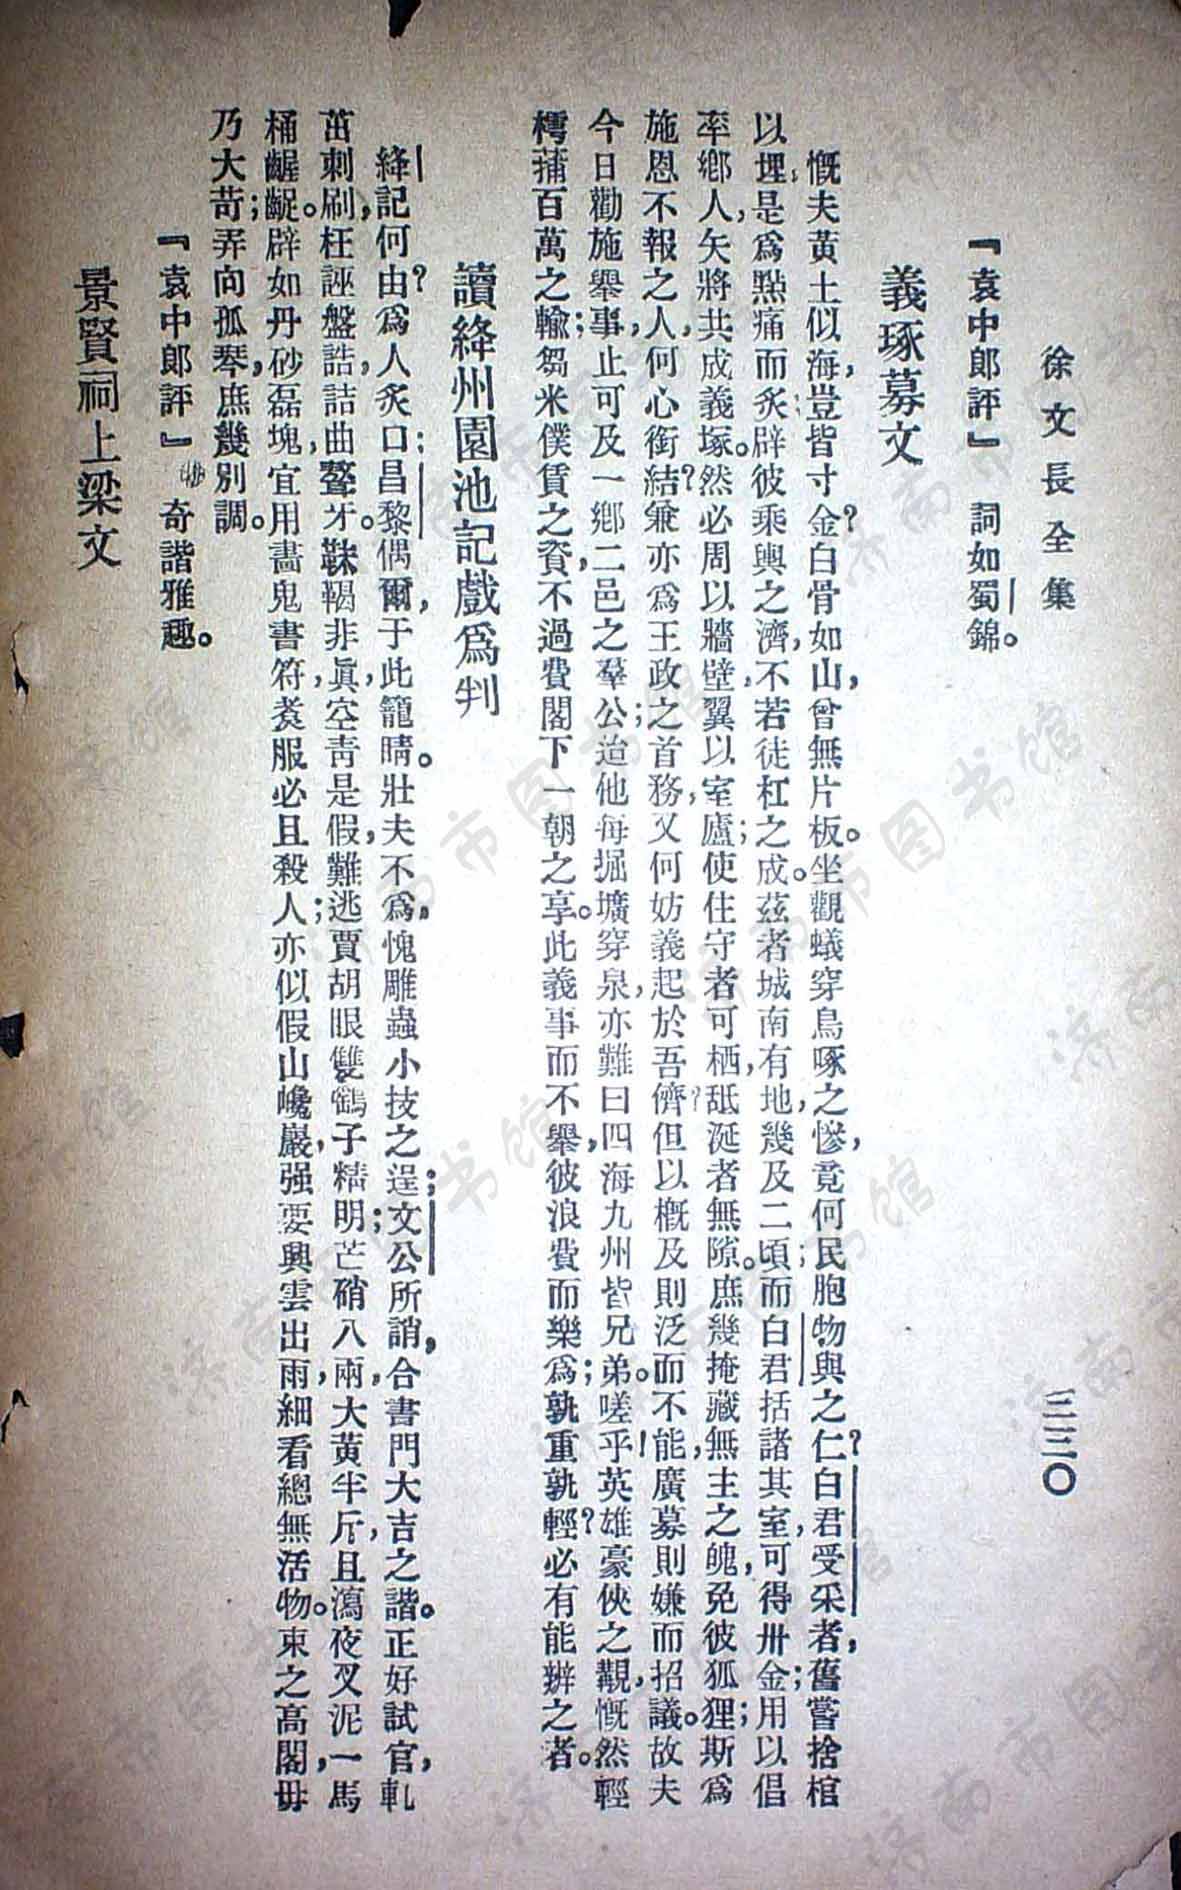 徐文長全集
三三〇
『袁中郎評』　詞如蜀錦。
義琢募文
慨夫黃土似海，豈皆寸金？白骨如山，曾無片板。坐觀蟻穿鳥啄之慘，竟何民胞物與之仁？白君受采者，舊嘗捨棺
以埋；是爲點痛而炙，辟彼乘輿之濟，不若徒杠之成。茲者城南有地，幾及二頃；而白君括諸其室，可得卅金；用以倡
率鄉人，矢將共成義塚。然必周以牆壁，翼以室廬；使住守者可栖，舐涎者無隙。庶幾掩藏無主之魄，免彼狐狸；斯爲
施恩不報之人，何心銜結？兼亦爲王政之首務，又何妨義起於吾儕？但以槪及則泛而不能，廣募則嫌而招議。故夫
今日勸施舉事，止可及一鄉二邑之羣公；迨他每掘壙穿泉，亦難曰四海九州皆兄弟。嗟乎！英雄豪俠之觀，慨然輕
樗蒲百萬之輸；芻米僕賃之資，不過費閣下一朝之享。此義事而不舉，彼浪費而樂爲；孰重孰輕？必有能辦之者。
讀絳州園池記戲爲判
絳記何由？爲人炙口；昌黎偶爾，于此籠睛。壯夫不爲，愧雕蟲小技之逞；文公所誚，合書門大吉之諧。正好試官，軋
茁刺刷，枉誣盤誥，詰曲聱牙。靺鞨非眞，空靑是假，難逃賈胡眼雙；鶴子精明；芒硝八兩，大黃半斤，且瀉夜叉泥一馬
桶齷齪。辟如丹砂磊塊，宜用畫鬼書符，䬸服必且殺人；亦似假山巉巖，强要興雲出雨，細看總無活物。束之高閣，毋
乃大苛；弄向孤琴，庶幾別調。
『袁中郎評』　奇諧雅趣。
景賢祠上梁文
济南市图书馆